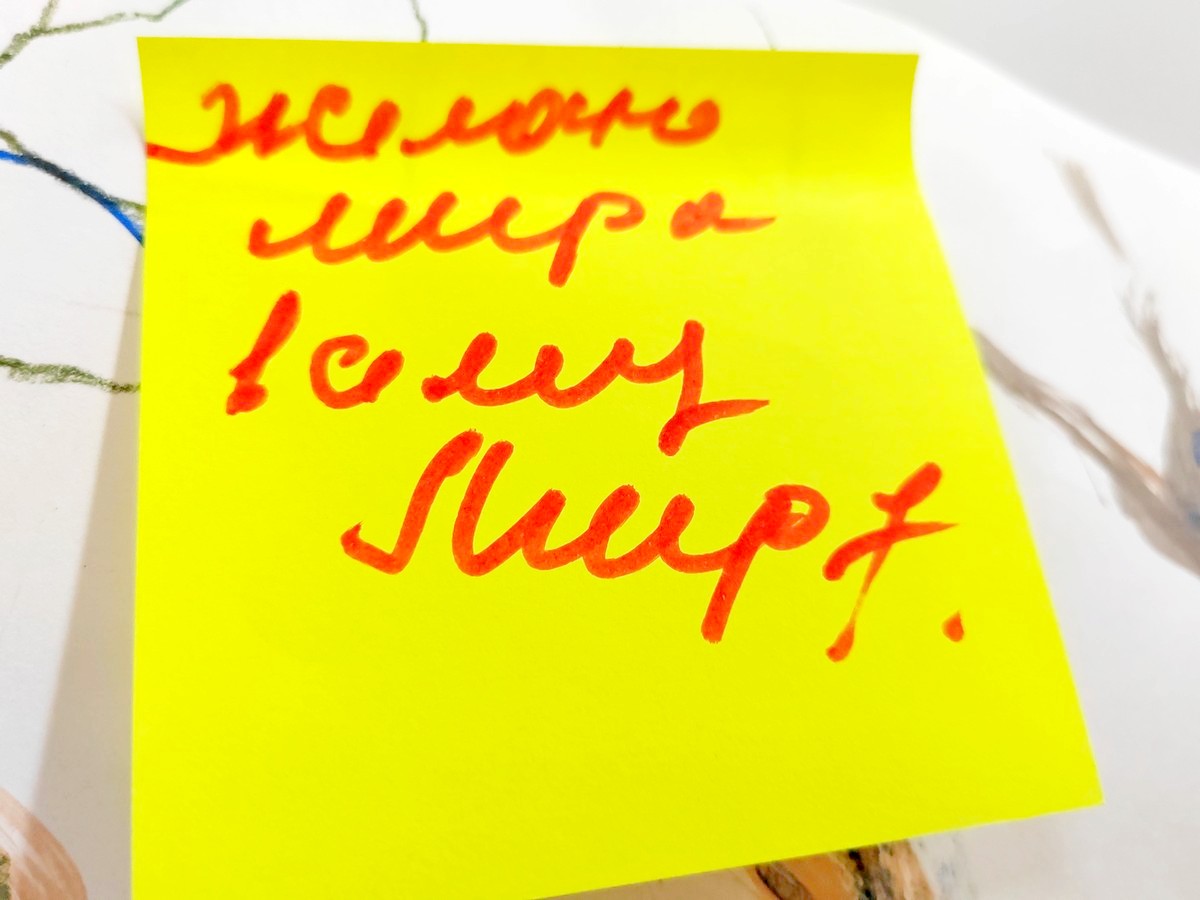 Желаю
мира
всему
Миру.